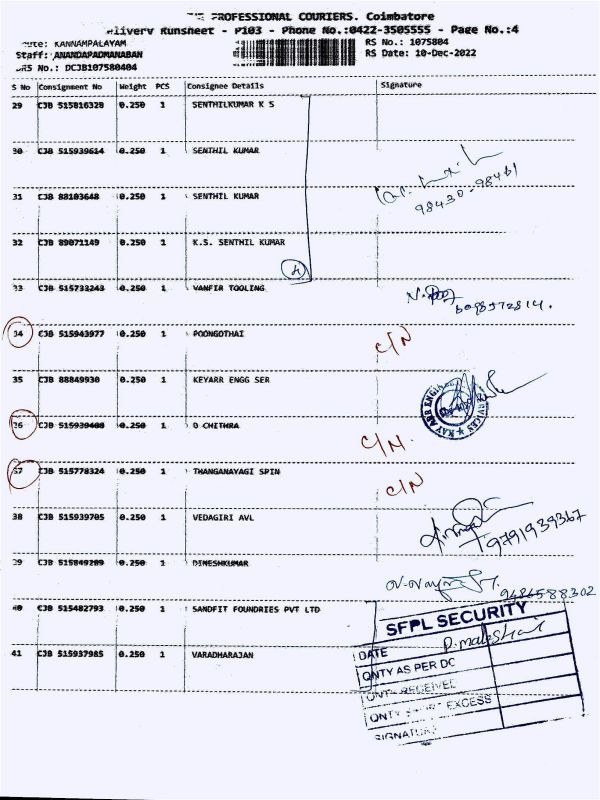 THE PROFESSIONAL COURIERS. Coimbatore
Delivery Runsheet - P103 - Phone No.:0422-3505555 - Page No.:4
Route: KANNAMPALAYAM RS No.: 1075804
Staff: ANANDAPADMANABAN RS Date: 10-Dec-2022
DRS No.: DCJB107580404
S No Consignment No Weight PCS Consignee Details Signature
29 CJB 515816328 0.250 1 SENTHILKUMAR K S
30 CJB 515939614 0.250 1 SENTHIL KUMAR
98430-98461
31 CJB 88103648 0.250 1 SENTHIL KUMAR
32 CJB 89071149 0.250 1 K.S. SENTHIL KUMAR
4
33 CJB 515733243 0.250 1 VANFIR TOOLING
6098572814.
34 CJB 515943977 0.250 1 POONGOTHAI C/N
35 CJB 88849930 0.250 1 KEYARR ENGG SER
36 CJB 515939408 0.250 1 D CHITHRA C/N.
37 CJB 515778324 0.250 1 THANGANAYAGI SPIN C/N
38 CJB 515939705 0.250 1 VEDAGIRI AVL 9791939367
39 CJB 515849209 0.250 1 DINESHKUMAR
9486588302
40 CJB 515482793 0.250 1 SANDFIT FOUNDRIES PVT LTD
SFPL SECURITY
DATE
41 CJB 515937985 0.250 1 VARADHARAJAN
QNTY AS PER DC
QNTY RECEIVED
QNTY SHORT EXCESS
SIGNATURE